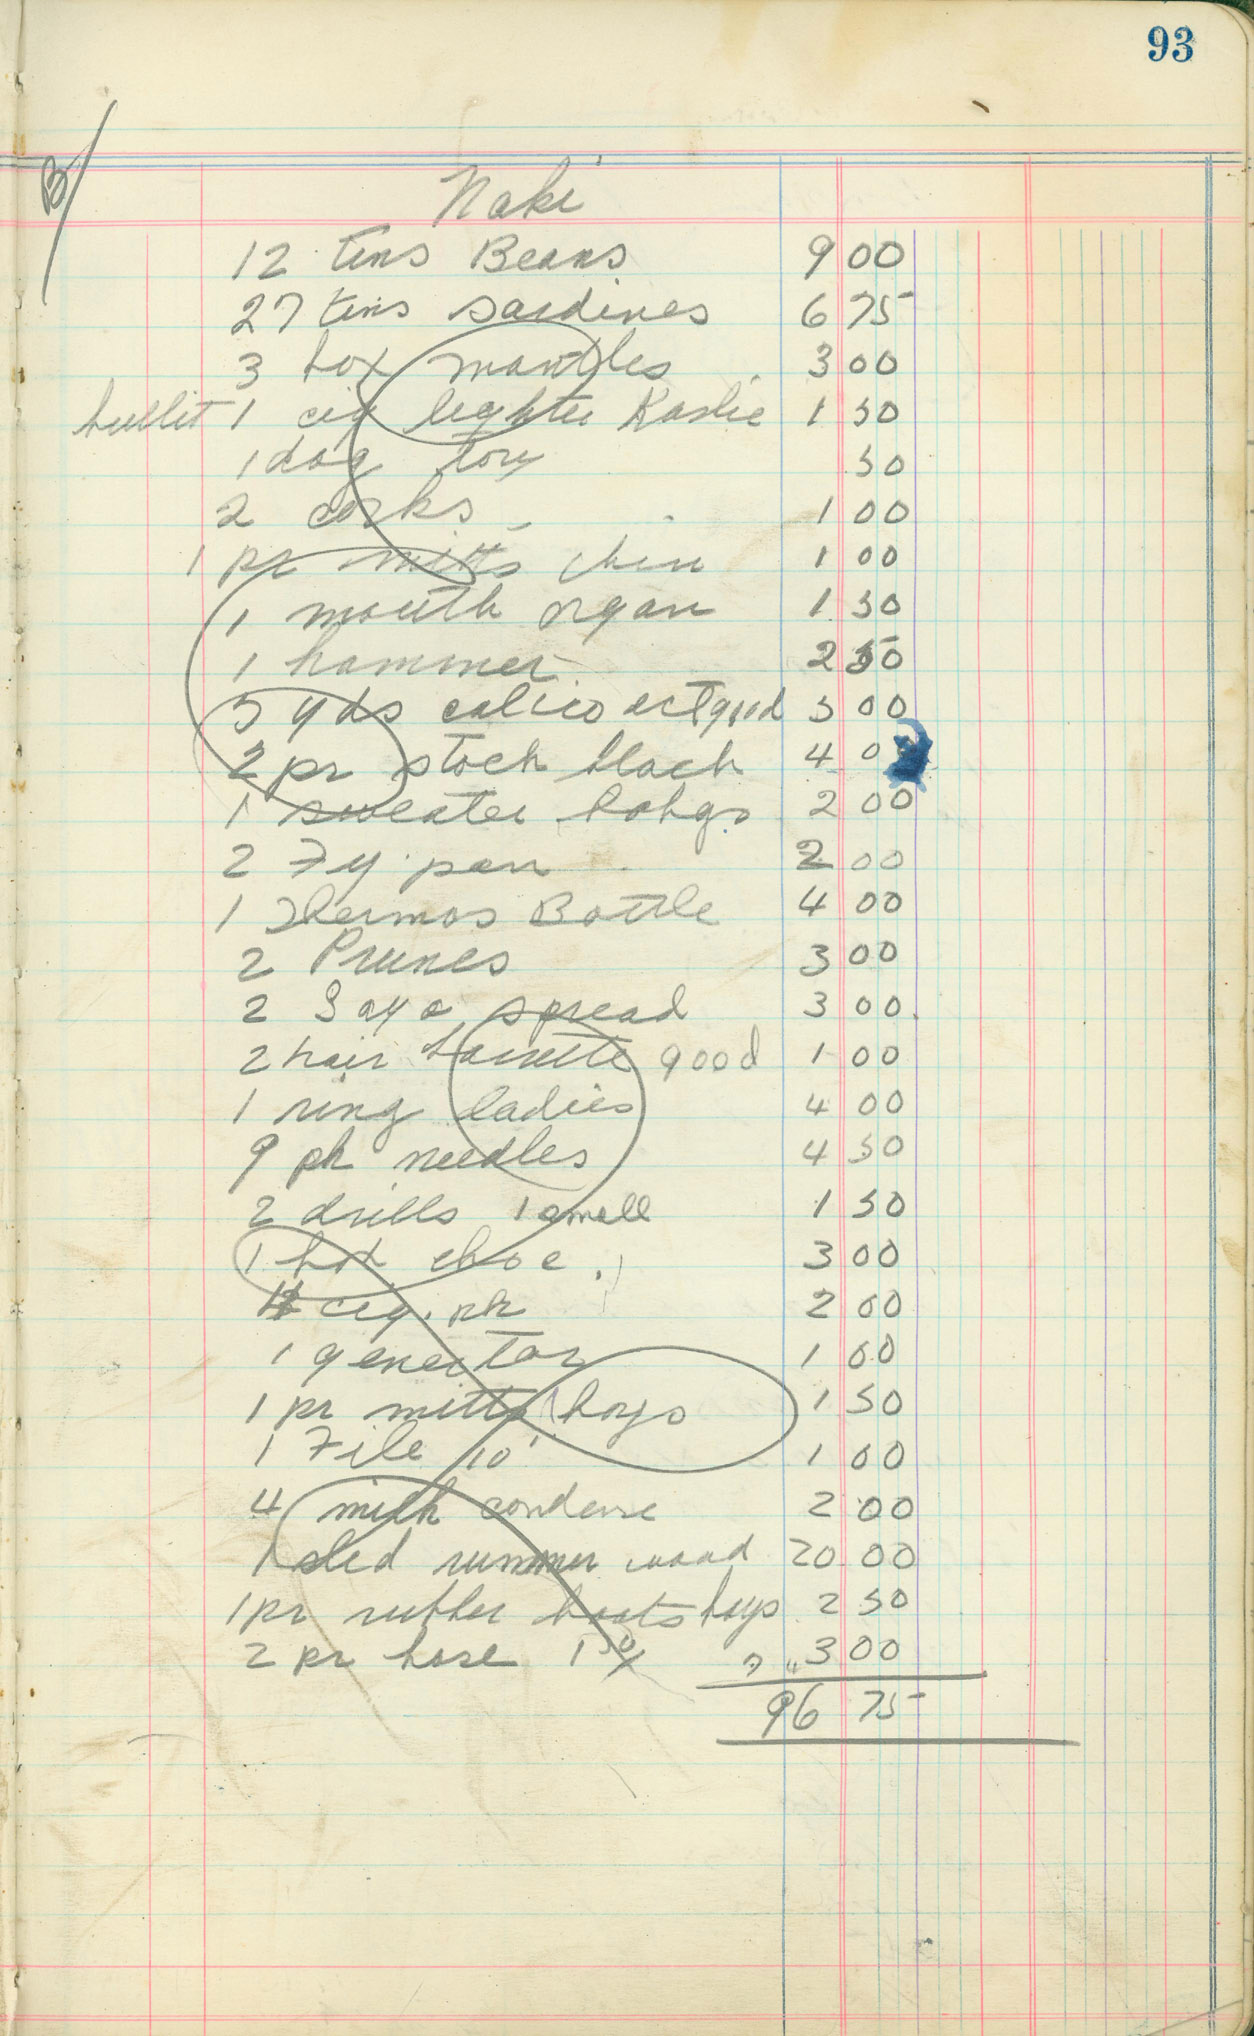 93
B
Naki
12 tins Beans 9 00
27 tins sardines 6 75
3 box mantles 3 00
bullit 1 cig lighter Raslie 1 50
1 dog toy 50
2 corks 1 00
1 pr mitts 1 00
1 mouth organ 1 50
1 hammer 2 50
5 yds calico art good 5 00
2 pr stock black 4 0
1 sweater 2 00
2 Fy pan 2 00
1 Thermos Bottle 4 00
2 Prunes 3 00
2 Saya spread 3 00
2 hair barette good 1 00
1 ring ladies 4 00
9 pk needles 4 50
2 drills 1 small 1 50
1 hot choc. 3 00
cig. pk 2 00
1 genertor 1 00
1 pr mitts boys 1 50
1 File 10' 1 00
4 milk condense 2 00
1 sled runner wood 20 00
1 pr rubber boots boys 2 50
2 pr hose 1 50 3 00
96 75